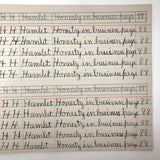 H H Hamlet Honesty in business pays 88
H H Hamlet Honesty in business pays 88
H H Hamlet Honesty in business pays 88
H H Hamlet Honesty in business pays 88
H H Hamlet Honesty in business pays 88
H H Hamlet Honesty in business pays 88
H H Hamlet Honesty in business pays 88
H H Hamlet Honesty in business pays 88
H H Hamlet Honesty in business pays 88